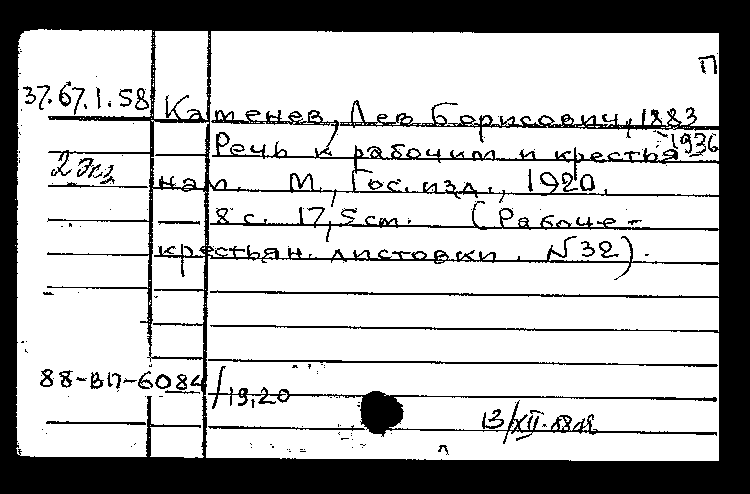 П
37.67.1.58 Каменев, Лев Борисович, 1883
1936
Речь к рабочим и крестья
2 экз
нам. М., Гос. изд., 1920.
8 с. 17,5 см. (Рабоче-
крестьян. листовки. № 32).
88-ВП-6084/19,20
13/XII-88